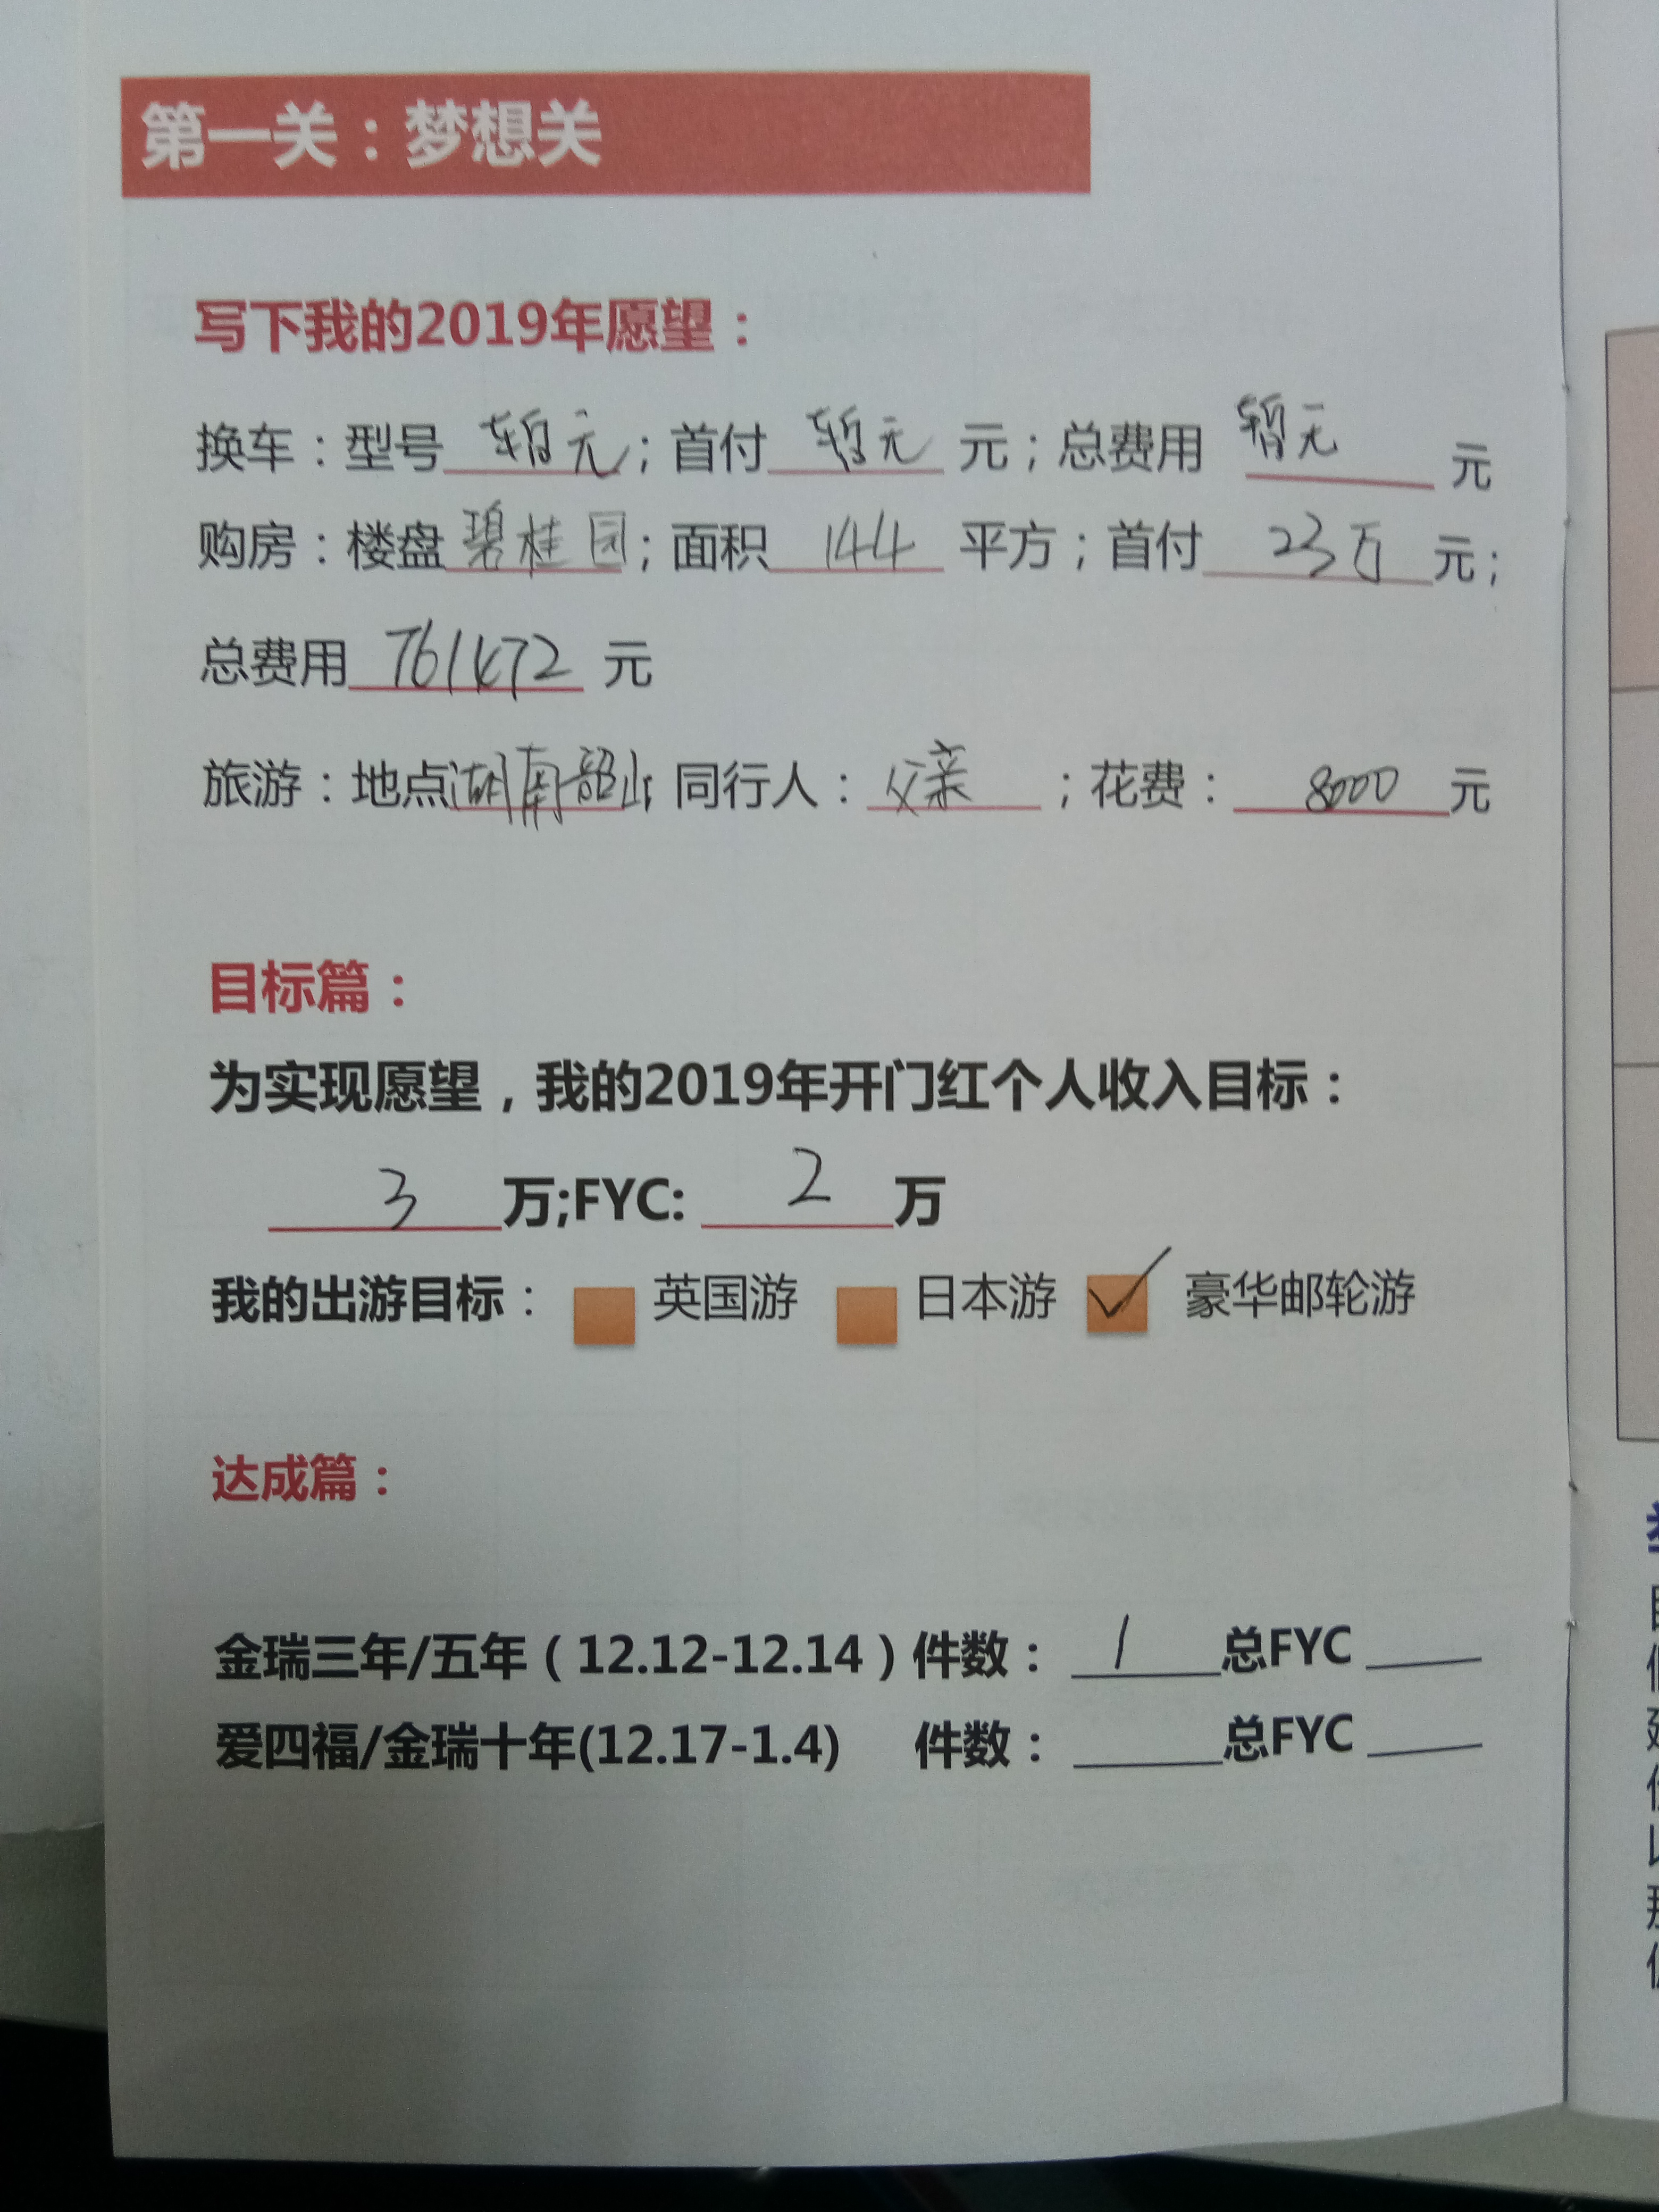 第一关：梦想关
写下我的2019年愿望：
换车：型号 暂无；首付 暂无 元；总费用 暂无 元
购房：楼盘 碧桂园；面积 144 平方；首付 23万 元；
总费用 761472 元
旅游：地点 湖南韶山 同行人：父亲；花费：8000 元
目标篇：
为实现愿望，我的2019年开门红个人收入目标：
3 万;FYC: 2 万
我的出游目标： 英国游 日本游 ✓ 豪华邮轮游
达成篇：
金瑞三年/五年（12.12-12.14）件数： 1 总FYC
爱四福/金瑞十年(12.17-1.4) 件数： 总FYC